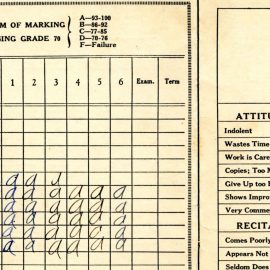 M OF MARKING
ING GRADE 70
A—93-100
B—86-92
C—77-85
D—70-76
F—Failure
1 2 3 4 5 6 Exam. Term
a a
a a a a a a
a a a a a a
a a a a a a
a a a a a a
a a a a a a
ATTITU
Indolent
Wastes Time
Work is Care
Copies; Too M
Give Up too E
Shows Impro
Very Comme
RECITA
Comes Poorly
Appears Not
Seldom Does